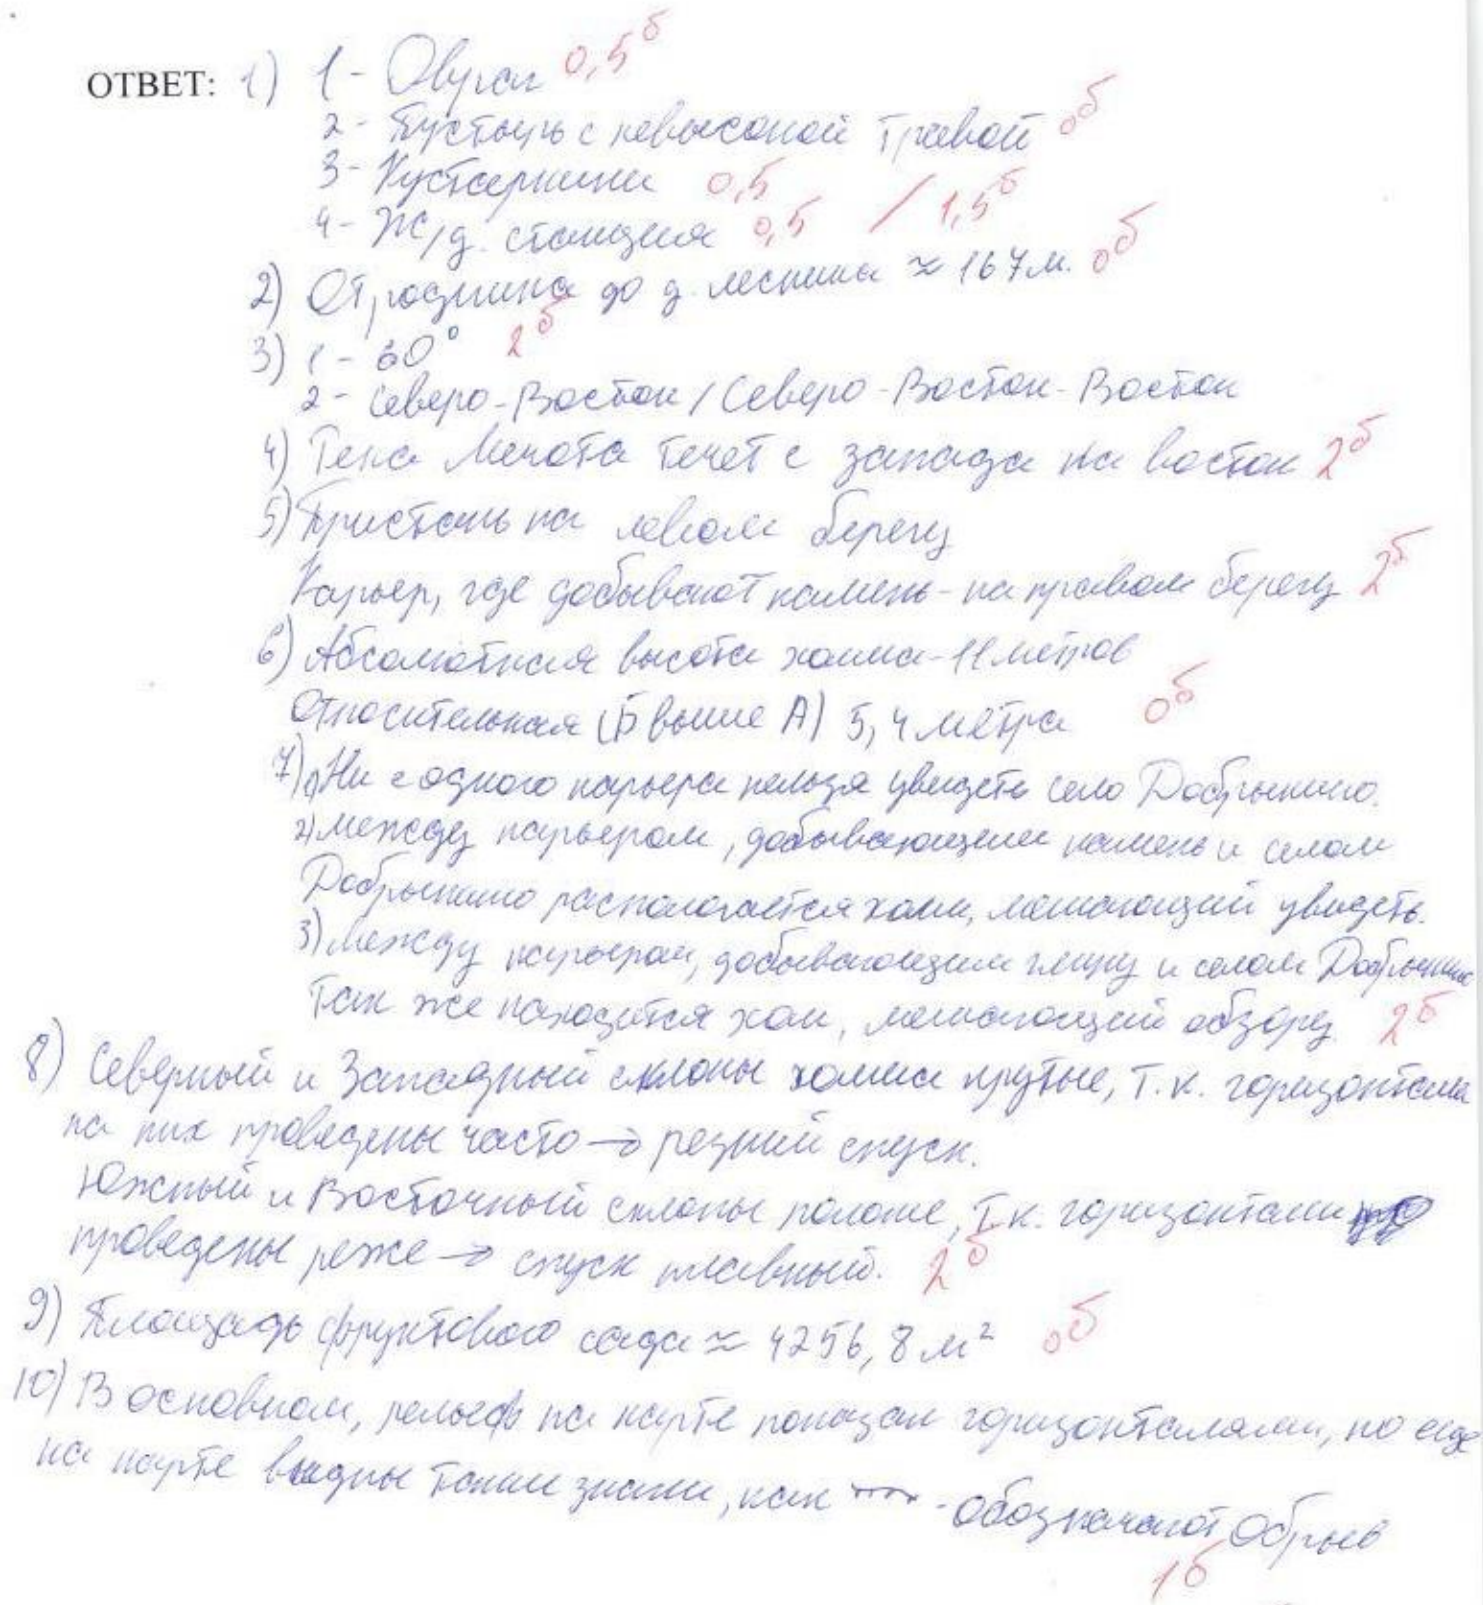 ОТВЕТ: 1) 1 - Овраг 0,5б
2 - Пустошь с невысокой травой 0б
3 - Кустарники 0,5
4 - Ж/д. станция 0,5 / 1,5б
2) От родника до д. лесника ≈ 167 м. 0б
3) 1 - 60° 2б
2 - Северо-Восток / Северо-Восток-Восток
4) Река Мечота течет с запада на восток 2б
5) Пристань на левом берегу
Карьер, где добывают камень - на правом берегу 2б
6) Абсолютная высота холма - 11 метров
Относительная (Б выше А) 5,4 метра 0б
7) 1) Ни с одного карьера нельзя увидеть село Добрынино.
2) между карьером, добывающим камень и селом
Добрынино располагается холм, мешающий увидеть.
3) Между карьером, добывающим глину и селом Добрынино
так же находится холм, мешающий обзору. 2б
8) Северный и Западный склоны холма крутые, т.к. горизонтали
на них проведены часто → резкий спуск.
Южный и Восточный склоны пологие, т.к. горизонтали
проведены реже → спуск плавный. 2б
9) Площадь фруктового сада ≈ 4256,8 м² 0б
10) В основном, рельеф на карте показан горизонталями, но еще
на карте видны такие знаки, как - обозначают Обрыв
1б